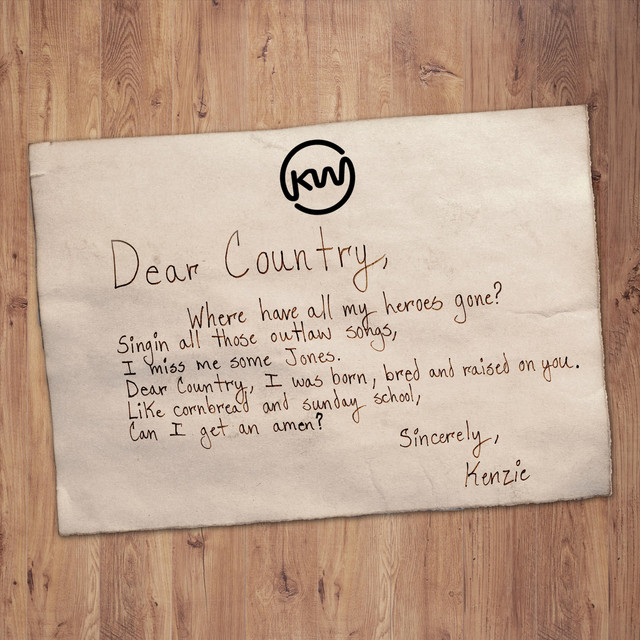 KW
Dear Country,
Where have all my heroes gone?
Singin all those outlaw songs,
I miss me some Jones.
Dear Country, I was born, bred and raised on you.
Like cornbread and sunday school,
Can I get an amen?
Sincerely,
Kenzie